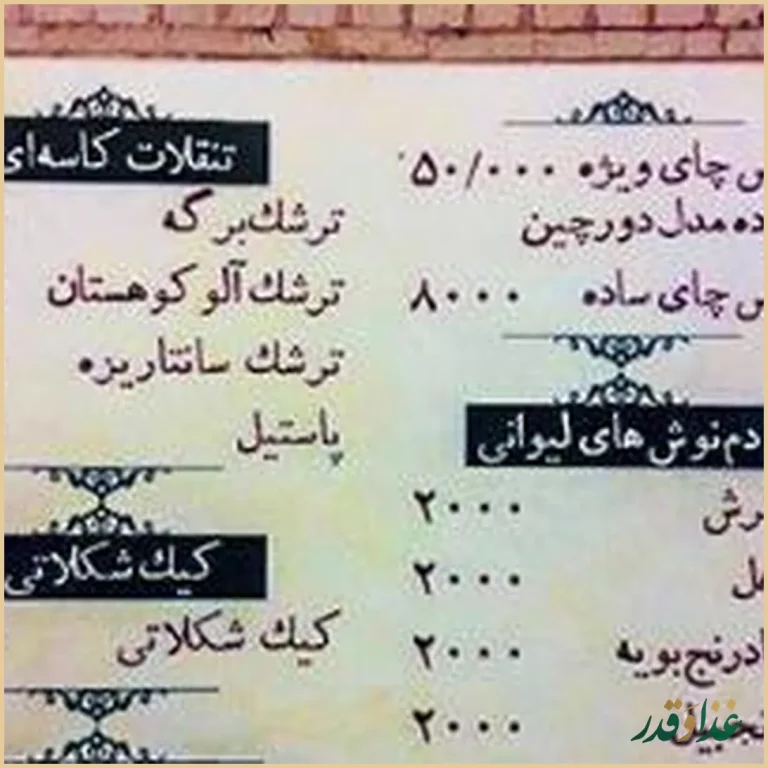 چای ویژه ۵۰/۰۰۰
مدل دورچین
چای ساده ۸۰۰۰
دم‌نوش های لیوانی
۲۰۰۰
۲۰۰۰
۲۰۰۰
۲۰۰۰
تنقلات کاسه‌ای
ترشک برگه
ترشک آلو کوهستان
ترشک سانتاریزه
پاستیل
کیک شکلاتی
کیک شکلاتی
غذا و قدر